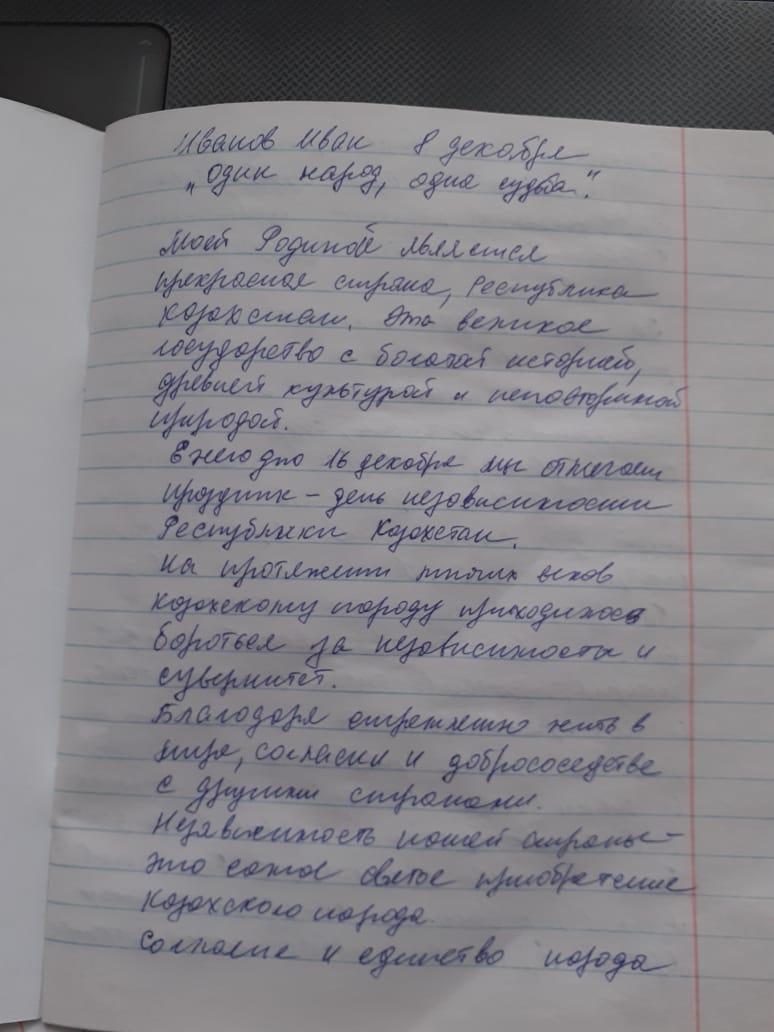 Иванов Иван 8 декабря
„Один народ, одна судьба".
Моей Родиной является
прекрасная страна, Республика
Казахстан. Это великое
государство с богатой историей,
древней культурой и неповторимой
природой.
Ежегодно 16 декабря мы отмечаем
праздник – день независимости
Республики Казахстан.
На протяжении многих веков
казахскому народу приходилось
бороться за независимость и
суверинтет.
Благодаря стремлению жить в
мире, согласии и добрососедстве
с другими странами.
Независимость нашей страны –
это самое святое приобретение
казахского народа.
Согласие и единство народа